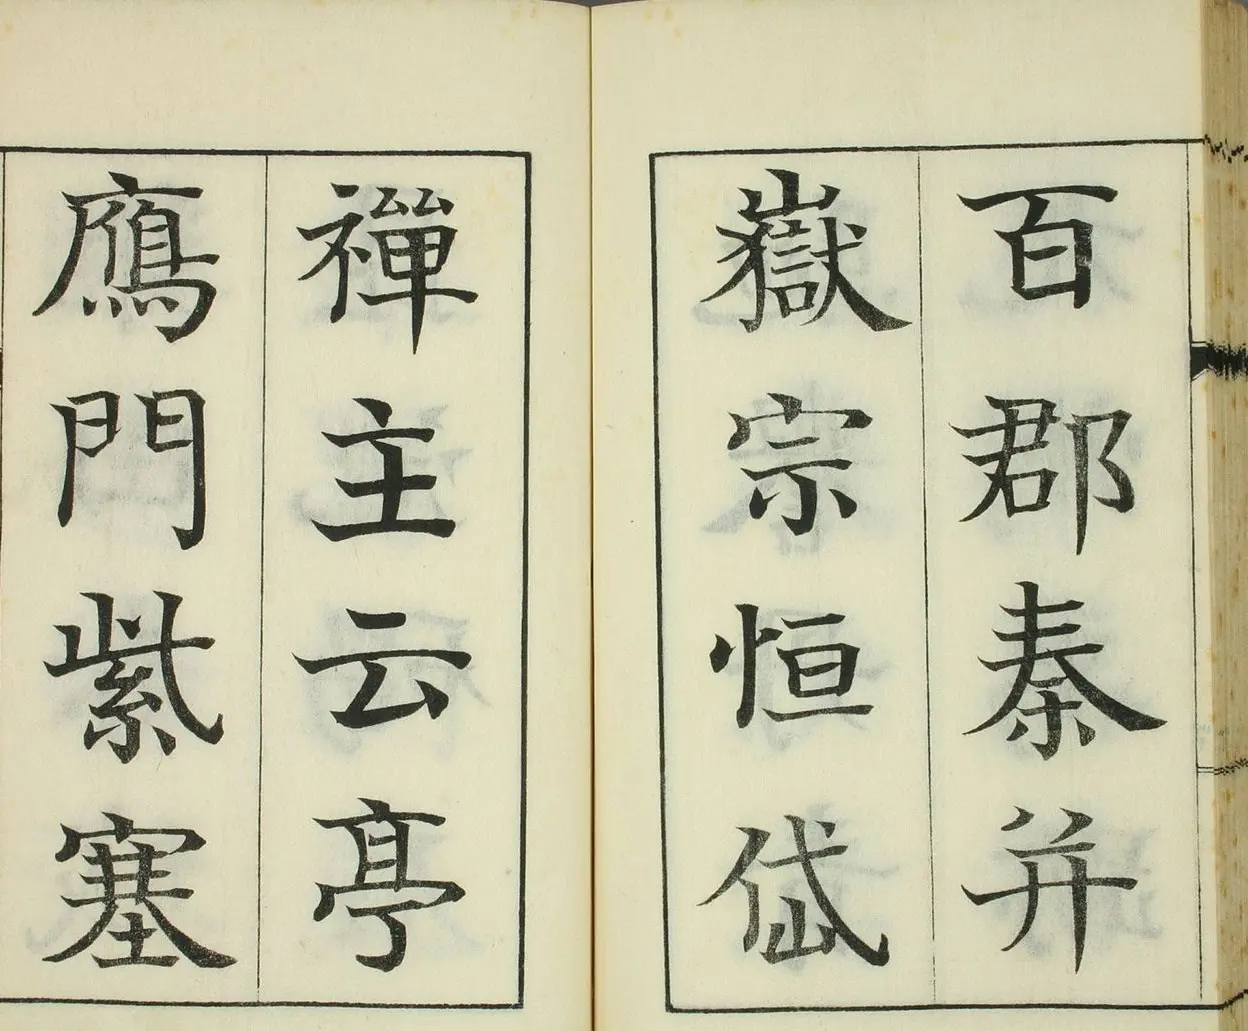 百郡秦并
嶽宗恒岱
禪主云亭
鴈門紫塞